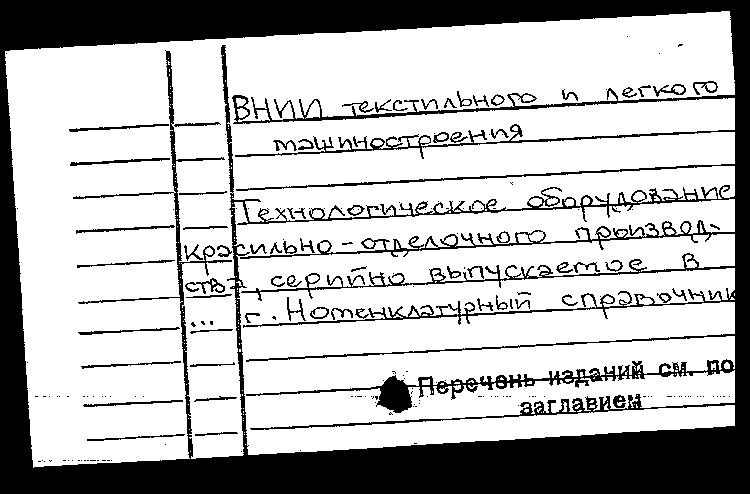 ВНИИ текстильного и легкого
машиностроения
Технологическое оборудование
красильно-отделочного производ-
ства, серийно выпускаемое в
... г. Номенклатурный справочник
Перечень изданий см. по
заглавием